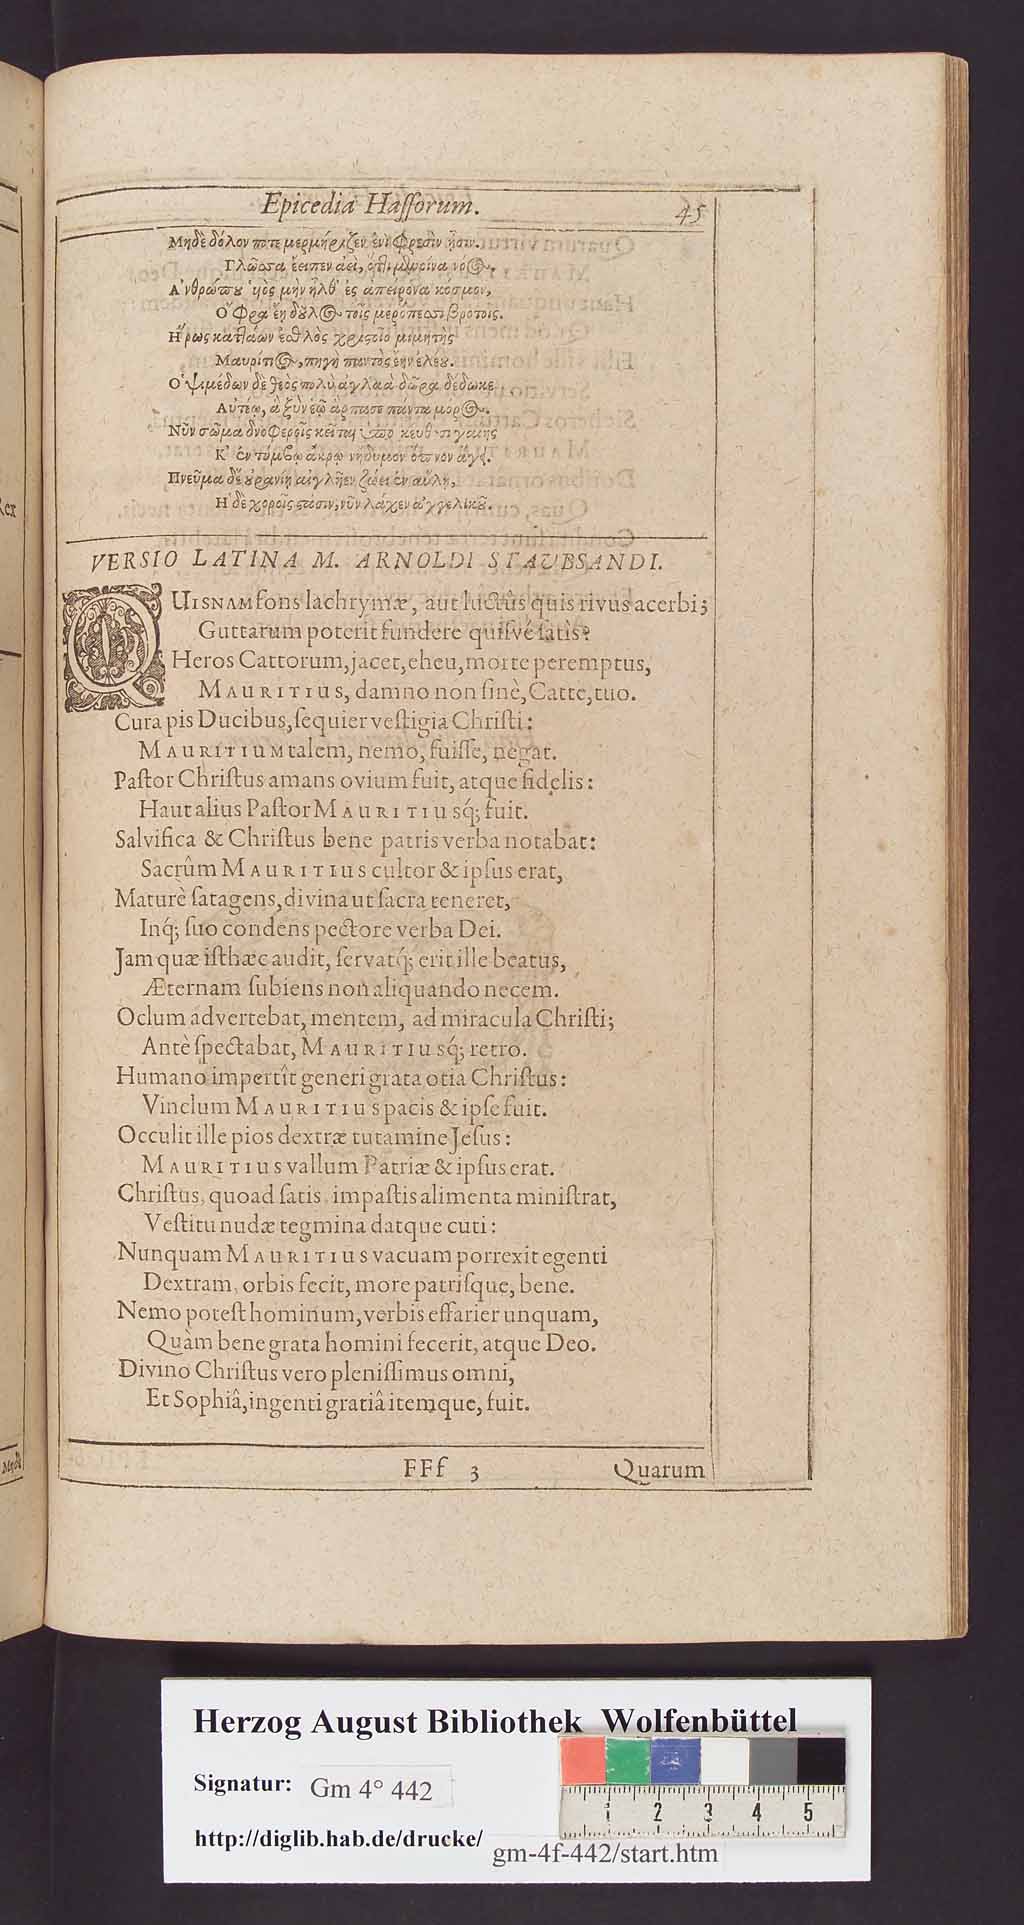 Epicedia Hassorum. 45
Μηδὲ δόλον ποτε μερμήριζεν ἐνὶ φρεσὶν ᾗσιν.
Γλῶσσα ἔειπεν ἀεὶ,
Ἀνθρώπου ὑὸς μὴν ἦλθ' ἐς ἀπείρονα κοσμον,
Ὄφρα ἔῃ δοῦλος τοῖς μερόπεσσι βροτοῖς.
Ἥρως κατθάων ἐσθλὸς χριστοῖο μιμητὴς
Μαυρίτιος, πηγὴ παντὸς ἔην ἐλέου.
Ὁ δὲ θεὸς πολὺ ἀγλαὰ δῶρα δέδωκε
Αὐτέῳ, ἃ ξὺν ἑῷ ἅρπασε πάντα μορος.
Νῦν σῶμα δνοφεροῖς κεῖται γαίης
Κ' ἐν τύμβῳ ἄκρῳ νήδυμον ὕπνον ἄγει.
Πνεῦμα δ' οὐρανίῃ αἰγλῆεν ζώει ἐν αὐλῇ,
Ἠδὲ χοροῖς νῦν λάχεν ἀγγελικοῦ.
VERSIO LATINA M. ARNOLDI STAUBSANDI.
QUISNAM fons lachrymæ, aut luctûs quis rivus acerbi;
Guttarum poterit fundere quisvé satìs?
Heros Cattorum, jacet, eheu, morte peremptus,
MAURITIUS, damno non sinè, Catte, tuo.
Cura pis Ducibus, sequier vestigia Christi:
MAURITIUM talem, nemo, fuisse, negat.
Pastor Christus amans ovium fuit, atque fidelis:
Haut alius Pastor MAURITIUSq́; fuit.
Salvifica & Christus bene patris verba notabat:
Sacrûm MAURITIUS cultor & ipsus erat,
Maturè satagens, divina ut sacra teneret,
Inq́; suo condens pectore verba Dei.
Jam quæ isthæc audit, servatq́; erit ille beatus,
Æternam subiens non aliquando necem.
Oclum advertebat, mentem, ad miracula Christi;
Antè spectabat, MAURITIUSq́; retro.
Humano impertît generi grata otia Christus:
Vinclum MAURITIUS pacis & ipse fuit.
Occulit ille pios dextræ tutamine Jesus:
MAURITIUS vallum Patriæ & ipsus erat.
Christus, quoad satis, impastis alimenta ministrat,
Vestitu nudæ tegmina datque cuti:
Nunquam MAURITIUS vacuam porrexit egenti
Dextram, orbis fecit, more patrisque, bene.
Nemo potest hominum, verbis effarier unquam,
Quàm bene grata homini fecerit, atque Deo.
Divino Christus vero plenissimus omni,
Et Sophiâ, ingenti gratiâ itemque, fuit.
FFf 3 Quarum
Herzog August Bibliothek Wolfenbüttel
Signatur: Gm 4° 442
http://diglib.hab.de/drucke/ gm-4f-442/start.htm
1 2 3 4 5